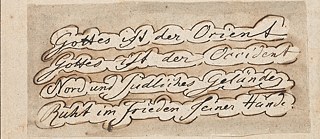 Gottes ist der Orient
Gottes ist der Occident
Nord und südliches Gelände
Ruht im Frieden seiner Hände